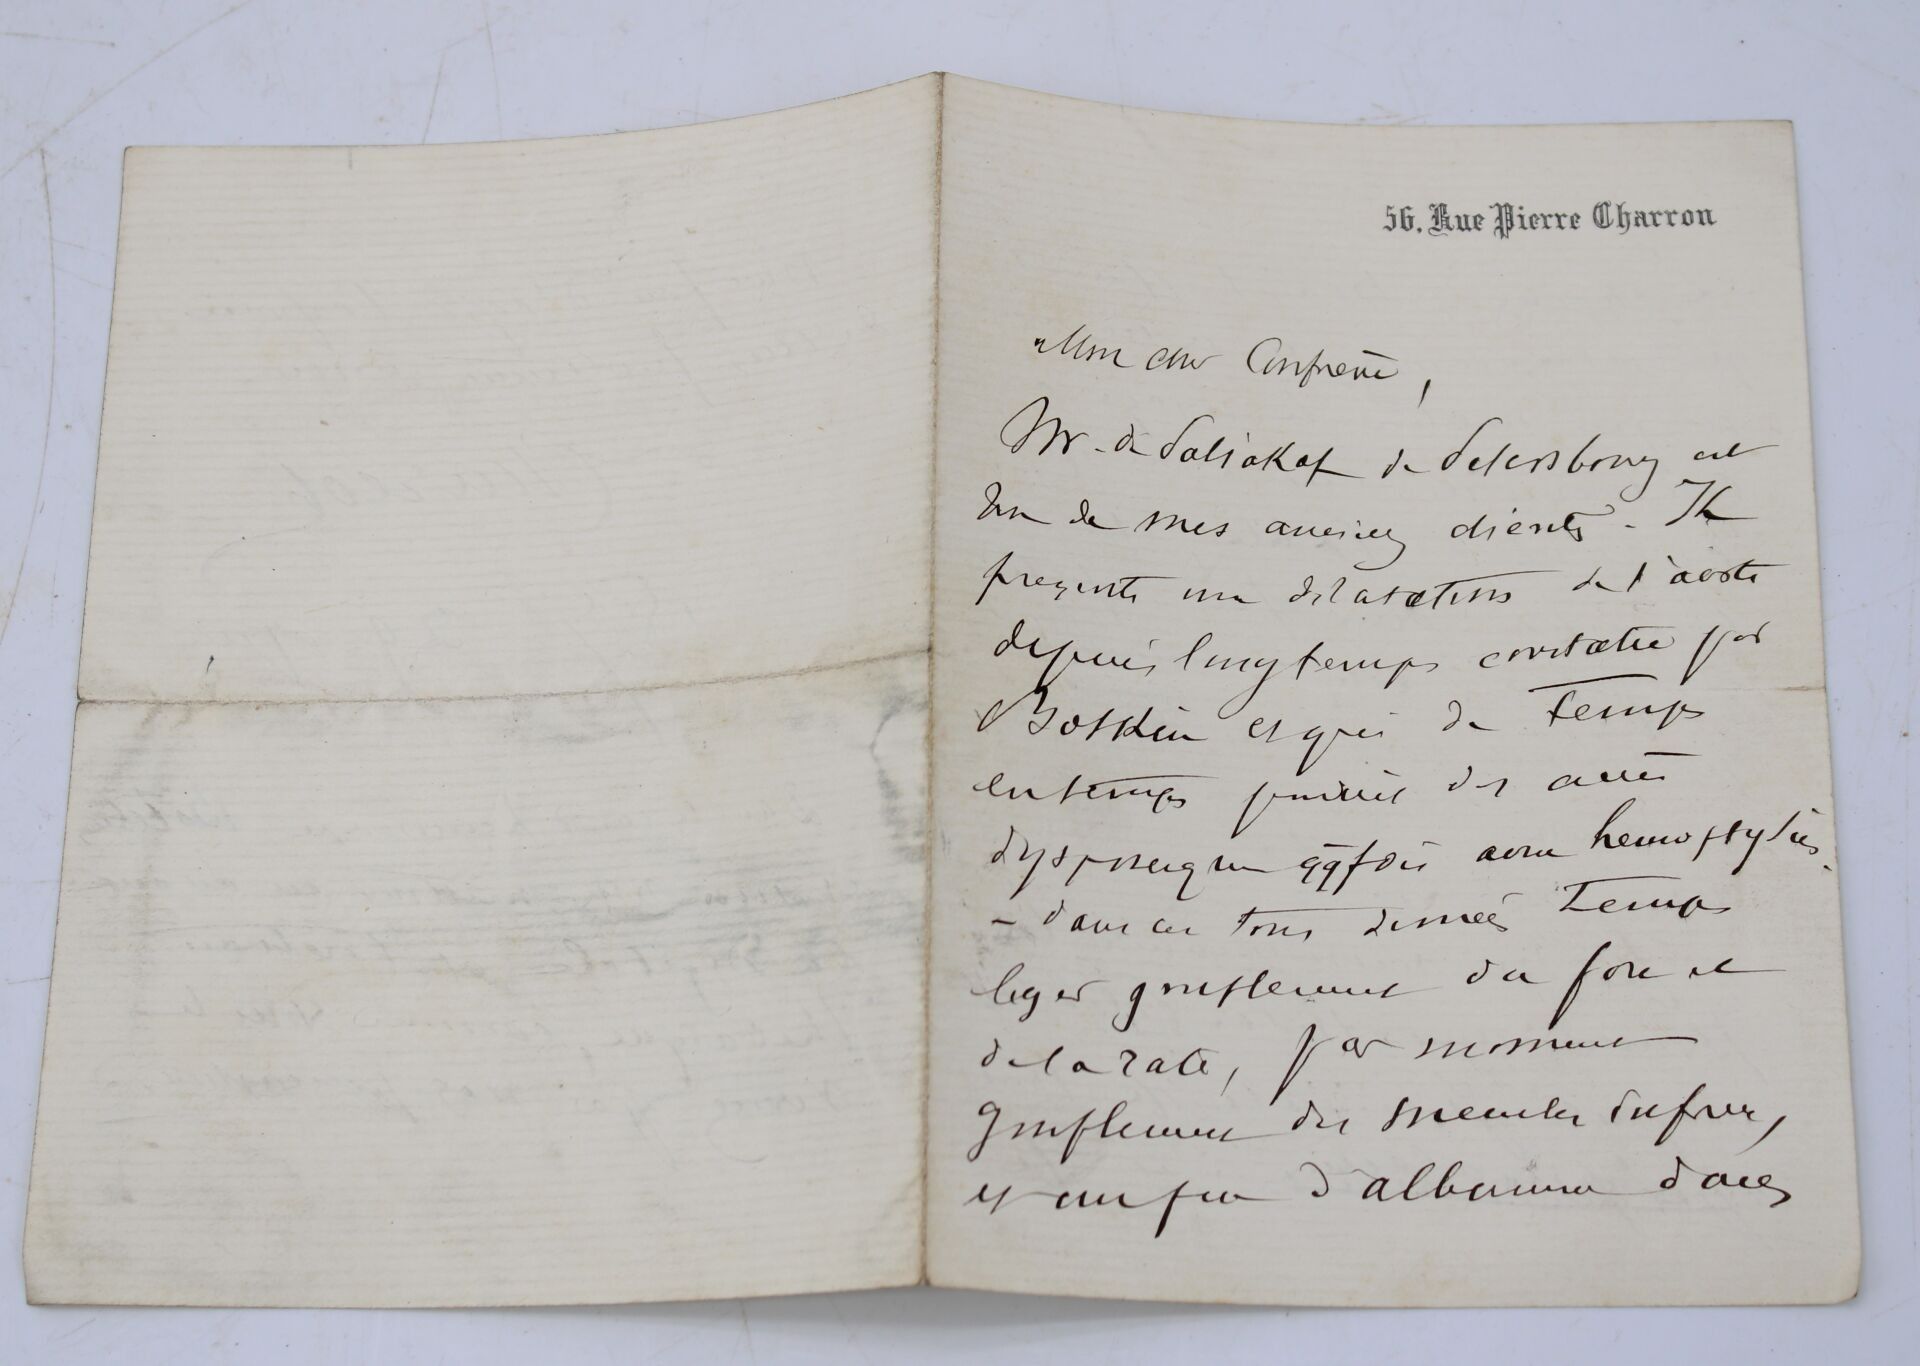 56. Rue Pierre Charron
Mon cher Confrère,
Mr. de de Petersbourg est
Un de mes anciens clients. Il
presente une dilatation de l'aorte
depuis longtemps constatée par
Botkin et qui de temps
en temps produit des accès
dyspneique qqfois avec hemoptysies.
- dans ces tous derniers temps
leger gonflement du foie et
de la rate, par moment
gonflement des membres infer,
et un peu d'albumine dans